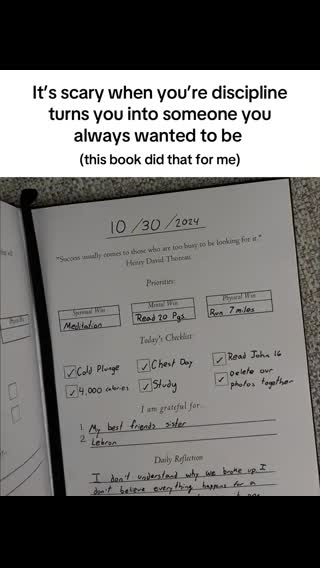 It's scary when you're discipline
turns you into someone you
always wanted to be
(this book did that for me)
10 / 30 / 2024
"Success usually comes to those who are too busy to be looking for it."
Henry David Thoreau
Priorities:
Spiritual Win
Mental Win
Physical Win
Meditation
Read 20 Pgs.
Run 7 miles
Today's Checklist
✓ Cold Plunge
✓ Chest Day
✓ Read John 16
✓ 4,000 calories
✓ Study
✓ Delete our
photos together
I am grateful for...
1. My best friends sister
2. Lebron
Daily Reflection
I don't understand why we broke up. I
don't believe everything happens for a